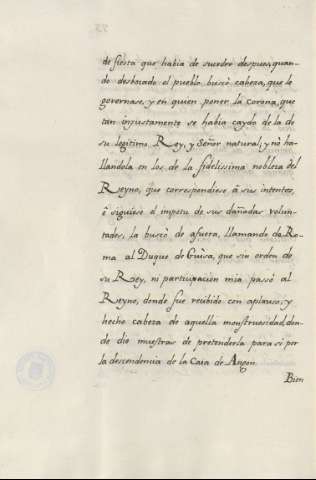 de fiesta que habia de suceder despues, quan-
do desbocado el pueblo buscó cabeza, que le
governase, y en quien poner la corona, que
tan injustamente se habia caydo de la de
su legitimo Rey, y Señor natural; y no ha-
llandola en los de la fidelissima nobleza del
Reyno, que correspondiese á sus intentos,
ó siguiese el impetu de sus dañadas volun-
tades, la buscó de afuera, llamando de Ro-
ma al Duque de Guisa, que sin orden de
su Rey, ni participacion mia passó al
Reyno, donde fue recibido con aplauso; y
hecho cabeza de aquella monstruosidad, don-
de dio muestras de pretenderla para si por
la descendencia de la Casa de Anjou.
Bien